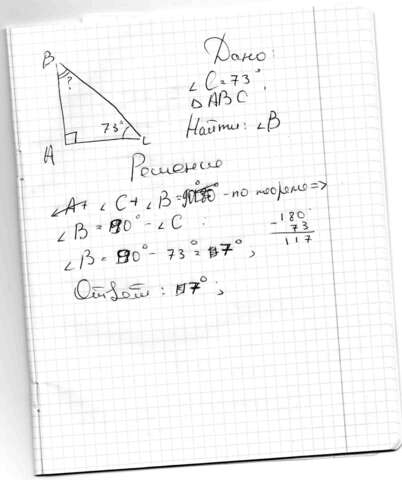 Дано:
∠C = 73°,
△ABC
Найти: ∠B
B
?
73°
A
C
Решение
∠A + ∠C + ∠B = 90° - по теореме =>
∠B = 90° - ∠C
∠B = 90° - 73° = 17°;
-180
73
117
Ответ: 17°;